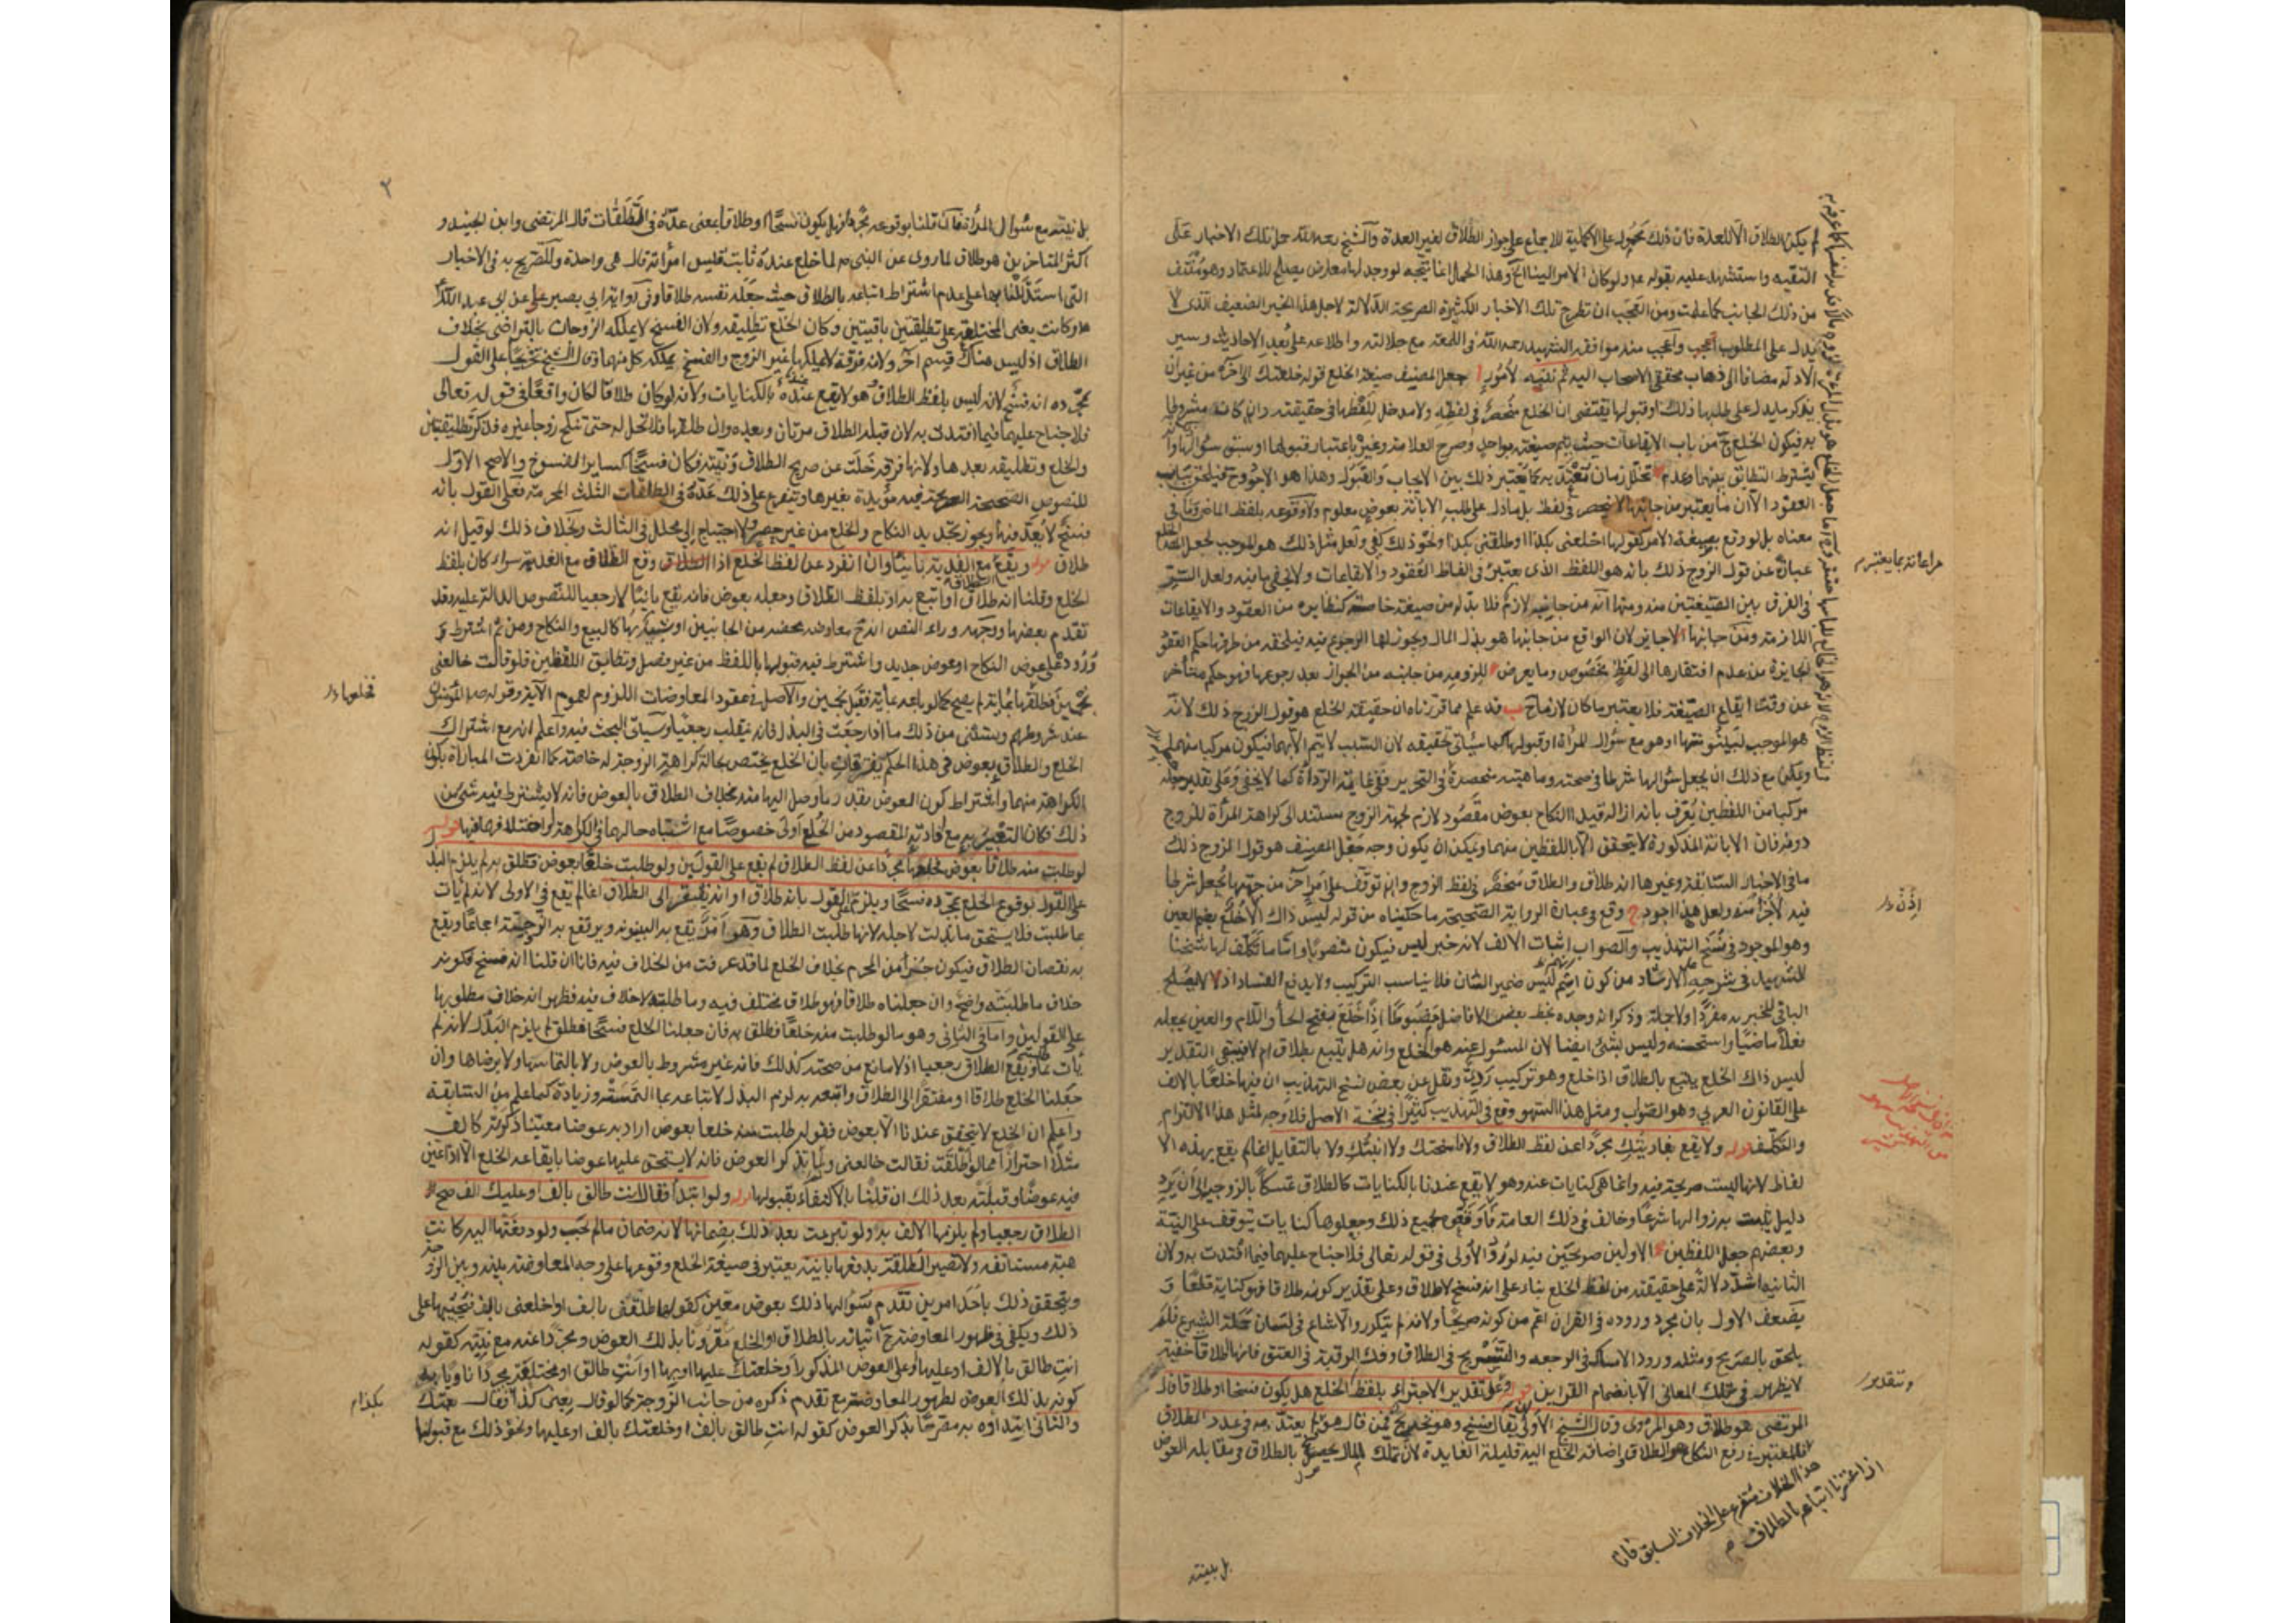 لم يكن الطلاق الا للعدة فان ذلك محمول على الاكملية للاجماع على جواز الطلاق لغير العدة والشيخ رحمه الله حمل تلك الاخبار على
التقيه واستشهد عليه بقوله ولو كان الامر الينا الخ وهذا الحمل انما يتجه لو وجد لها معارض يصلح للاعتماد وهو منتف
من ذلك الجانب كما علمت ومن العجب ان تطرح تلك الاخبار الكثيرة الصريحة الدلالة لاجل هذا الخبر الضعيف الذى لا
يدل على المطلوب واعجب منه موافقه الشهيد رحمه الله فى اللمعه مع جلالته واطلاعه على الاحاديث وسبر
الادله مضافا الى ذهاب محققى الاصحاب اليه ثم تنبيه لامور ا جعل المصنف صيغه الخلع قوله خلعتك الى آخره من غير ان
يذكر ما يدل على طلبها ذلك او قبولها يقتضى ان الخلع منحصر فى لفظه ولا مدخل للفظها فى حقيقته وان كان مشروطا
به فيكون الخلع ح من باب الايقاعات حيث يتم صيغته بواحد وصرح العلامه وغيره باعتبار قبولها او سبق سؤالها وانه
يشترط التطابق بينهما وعدم تخلل زمان معتد به كما يعتبر ذلك بين الايجاب والقبول وهذا هو الاجود ح فيلحق بباب
العقود الا ان ما يعتبر من جانبها لا ينحصر فى لفظ بل ما دل على طلب الابانة بعوض معلوم ولا وقوعه بلفظ الماضى وما فى
معناه بل لو وقع بصيغة الامر كقولها اخلعنى بكذا او طلقنى بكذا ونحو ذلك كفى ولعل مثل ذلك هو الموجب لجعل الخلع
عبارة عن قول الزوج ذلك بانه هو اللفظ الذى يعتبر فى الفاظ العقود والايقاعات ولا يخفى ما فيه ولعل السر
فى الفرق بين الصيغتين منه ومنها انه من جانبه لازم فلا بد له من صيغة خاصة كنظايره من العقود والايقاعات
اللازمة ومن جانبها لا جاير لان الواقع من جانبها هو بذل المال ويجوز لها الرجوع فيه فيلحقه من طرفها حكم العقود
الجايزة من عدم افتقارها الى لفظ مخصوص وما يعرض للزومه من جانبه من الجواز بعد رجوعها فهو حكم متأخر
عن وقت ايقاع الصيغة فلا يعتبر ما كان لازما ح ب قد علم مما قررناه ان حقيقة الخلع هو قول الزوج ذلك لانه
هو الموجب لبينونتها او هو مع سؤال المرأة او قبولها كما سياتى تحقيقه لان السبب لا يتم الا بهما فيكون مركبا منهما
ويمكن مع ذلك ان يجعل سؤالها شرطا فى صحته وماهيته منحصرة فى التحرير ففى غاية الرداءة كما لا يخفى وعلى تقدير جعله
مركبا من اللفظين يعرف بانه ازاله قيد النكاح بعوض مقصود لازم لجهة الزوج مستند الى كراهة المرأة للزوج
دونه فان الابانة المذكورة لا يتحقق الا باللفظين منهما ويمكن ان يكون وجه جعل المصنف هو قول الزوج ذلك
ما فى الاخبار السابقة وغيرها انه طلاق والطلاق منحصر فى لفظ الزوج وان توقف على امر آخر من جهتها يجعل شرطا
فيه لا جزأ منه ولعل هذا اجود ج وقع فى عبارة الرواية الصحيحة ما حكيناه من قوله ليس ذاك الا خلع بضم العين
وهو الموجود فى نسخ التهذيب والصواب اثبات الالف لانه خبر ليس فيكون منصوبا واما ما تكلف لها شيخنا
الشهيد فى شرحه على الارشاد من كون اسم ليس ضمير الشان فلا يناسب التركيب ولا يدفع الفساد اذ لا يصلح
الباقى للخبريه مفردا ولا جملة وذكر انه وجده بخط بعض الافاضل مضبوطا اذا خلع بفتح الخا واللام والعين بجعله
فعلا ماضيا واستحسنه وليس بشئ ايضا لان المسئول عنه هو الخلع وانه هل يتبع بطلاق ام لا فيبقى التقدير
ليس ذاك الخلع يتبع بالطلاق اذا خلع وهو تركيب ردى ونقل عن بعض نسخ التهذيب ان فيها خلعا بالالف
على القانون العربى وهو الصواب ومثل هذا السهو وقع فى التهذيب كثيرا فى نسخة الاصل فلا وجه لمثل هذا الالتزام
والتكلف قوله ولا يقع بفاديتك مجردا عن لفظ الطلاق ولا فاسختك ولا ابنتك ولا بالتقايل انما لم يقع بهذه الا
لفاظ لانها ليست صريحة فيه وانما هى كنايات عنه وهو لا يقع عندنا بالكنايات كالطلاق تمسكا بالزوجية الى ان يرد
دليل يثبت به زوالها شرعا وخالف فى ذلك العامة فاوقعوه بجميع ذلك وجعلوها كنايات يتوقف على النية
وبعضهم جعل اللفظين الاولين صريحين فيه لورود الاولى فى قوله تعالى فلا جناح عليهما فيما افتدت به ولان
الثانيه اشد دلالة على حقيقته من لفظ الخلع بناء على انه فسخ لا طلاق وعلى تقدير كونه طلاقا فهو كناية قطعا و
يضعف الاول بان مجرد وروده فى القران اعم من كونه صريحا ولانه لم يتكرر ولا شاع فى لسان حملة الشرع فلم
يلحق بالصريح ومثله ورود الامساك فى الرجعه والتسريح فى الطلاق وفك الرقبة فى العتق فانها اطلاقات خفية
لا يظهر فى تلك المعانى الا بانضمام القراين قوله وعلى تقدير الاجتراء بلفظ الخلع هل يكون فسخا او طلاقا قال
المرتضى هو طلاق وهو المروى وقال الشيخ الاولى ان يقال فسخ وهو تخريج فمن قال هو فسخ لم يعتد به فى عدد الطلاق
المعتبر فى رفع النكاح هو الطلاق واضافة الخلع اليه قليلة الفايدة لان تملك المال يحصل بالطلاق فى مقابلة العوض
مراعاته بما يعتبر م
اذن دل
وتتقدير
هذا الخلاف متفرع على الخلاف السابق فان
اذا اعتبرنا اتباعه بالطلاق م
بل بنيته
٢
بل بنيته مع سؤال المرأة فان قلنا بوقوعه مجردا فهل يكون فسخا او طلاقا بمعنى عده فى الطلقات قال المرتضى وابن الجنيد و
اكثر المتاخرين هو طلاق لما روى عن النبى ص لما خلع عنده ثابت بن قيس امرأته قال هى واحدة وللتصريح به فى الاخبار
التى استدللنا بها على عدم اشتراط اتباعه بالطلاق حيث جعله نفسه طلاقا وفى رواية ابى بصير عن ابى عبد الله
ع وكانت يعنى المختلعة على تطليقتين باقيتين وكان الخلع تطليقه ولان الفسخ لا يملكه الزوجان بالتراضى بخلاف
الطلاق اذ ليس هناك قسم آخر ولانه فرقة لا يملكها غير الزوج والفسخ يملكه كل منهما وقال الشيخ تخريجا على القول
بمجرده انه فسخ لانه ليس بلفظ الطلاق وهو لا يقع عندنا بالكنايات ولانه لو كان طلاقا لكان واقعا فى قوله تعالى
فلا جناح عليهما فيما افتدت به لان قبله الطلاق مرتان وبعده وان طلقها فلا تحل له حتى تنكح زوجا غيره فذكر تطليقتين
والخلع وتطليقه بعدها ولانها فرقة خلت عن صريح الطلاق ونيته فكان فسخا كساير الفسوخ والاصح الاول
للنصوص الصحيحة الصريحة فيه مؤيدة بغيرها ويتفرع على ذلك عده فى الطلقات الثلث المحرمة فعلى القول بانه
فسخ لا يعد فيها ويجوز تجديد النكاح والخلع من غير حصر ولا احتياج الى محلل فى الثالث وبخلاف ذلك لو قيل انه
طلاق قوله ويقع مع الفدية باينا وان انفرد عن لفظ الخلع اذا وقع الطلاق مع الفدية سواء كان بلفظ
الخلع وقلنا انه طلاق او اتبع به او بلفظ الطلاق وجعله بعوض فانه يقع باينا لا رجعيا للنصوص الدالة عليه وقد
تقدم بعضها ووجهه وراء النص انه ح معاوضة محضة من الجانبين او شبيه بها كالبيع والنكاح ومن ثم اشترط و
رود على عوض النكاح او عوض جديد واشترط فيه قبولها باللفظ من غير فصل وتطابق اللفظين فلو قالت خالعنى
بخمسين فطلقها بمائة لم يصح كما لو باعه بمائة فقبل بخمسين والاصل فى عقود المعاوضات اللزوم لعموم الآية وقوله ص المؤمنون
عند شروطهم ويستثنى من ذلك ما اذا رجعت فى البذل فانه ينقلب رجعيا وسياتى البحث فيه واعلم انه مع اشتراك
الخلع والطلاق بعوض فى هذا الحكم يفترقان بان الخلع يختص بحالة كراهة الزوجة له خاصة كما انفردت المباراة بكون
الكراهة منهما واشتراط كون العوض بقدر ما وصل اليها منه بخلاف الطلاق بالعوض فانه لا يشترط فيه شئ من
ذلك فكان التعبير به مع افادته المقصود من الخلع اولى خصوصا مع اشتباه حالهما فى الكراهة او اختلافهما فيها قوله
لو طلبت منه طلاقا بعوض فخلعها مجردا عن لفظ الطلاق لم يقع على القولين ولو طلبت خلعا بعوض فطلق به لم يلزم البذل
على القول بوقوع الخلع بمجرده فسخا ويلزم على القول بانه طلاق او انه يفتقر الى الطلاق انما لم يقع فى الاولى لانه لم يات
بما طلبت فلا يستحق ما بذلت لاجله لانها طلبت الطلاق وهو امر يقع به البينونة ويرتفع به الزوجية اجماعا ويقع
به نقصان الطلاق فيكون جزأ من المحرم بخلاف الخلع لما قد عرفت من الخلاف فيه فانا ان قلنا انه فسخ فكونه
خلاف ما طلبته واضح وان جعلناه طلاقا فهو طلاق مختلف فيه وما طلبته لا خلاف فيه فظهر انه خلاف مطلوبها
على القولين واما فى الثانى وهو ما لو طلبت منه خلعا فطلق به فان جعلنا الخلع فسخا فطلق لم يلزم البذل لانه لم
يات بما طلبته ويقع الطلاق رجعيا اذ لا مانع من صحته كذلك فانه غير مشروط بالعوض ولا بالتماسها ولا برضاها وان
جعلنا الخلع طلاقا او مفتقرا الى الطلاق واتبعه به لزم البذل لاتباعه بما التمسته وزيادة كما علم من السابقة
واعلم ان الخلع لا يتحقق عندنا الا بعوض فقوله طلبت منه خلعا بعوض اراد به عوضا معينا ذكرته كالف
مثلا احترازا مما لو اطلقت فقالت خالعنى ولم تذكر العوض فانه لا يستحق عليها عوضا بايقاعه الخلع الا اذا عين
فيه عوضا وقبلته بعد ذلك ان قلنا بالاكتفاء بقبولها قوله ولو ابتدا فقال انت طالق بالف او عليك الف صح
الطلاق رجعيا ولم يلزمها الالف ولو تبرعت بعد ذلك بضمانها لانه ضمان ما لم يجب ولو دفعتها اليه كانت
هبة مستانفه ولا تصير المطلقة بدفعها باينة يعتبر فى صيغة الخلع وقوعها على وجه المعاوضة بينه وبين الزوجة
ويتحقق ذلك باحد امرين تقدم سؤالها ذلك بعوض معين كقولها طلقنى بالف او اخلعنى بالف فيجيبها على
ذلك ويكفى فى ظهور المعاوضة ح اتيانه بالطلاق او الخلع مقرونا بذلك العوض ومجردا عنه مع نيته كقوله
انت طالق بالالف او عليها او على العوض المذكور او خلعتك عليها او بها او انت طالق او مختلعة مجردا ناويا به
كونه بذلك العوض لظهور المعاوضة مع تقدم ذكره من جانب الزوجة كما لو قال بعنى كذا فقال بعتك
والثانى ابتداؤه به مصرحا بذكر العوض كقوله انت طالق بالف او خلعتك بالف او عليها ونحو ذلك مع قبولها
فخلعها دل
بكذا م